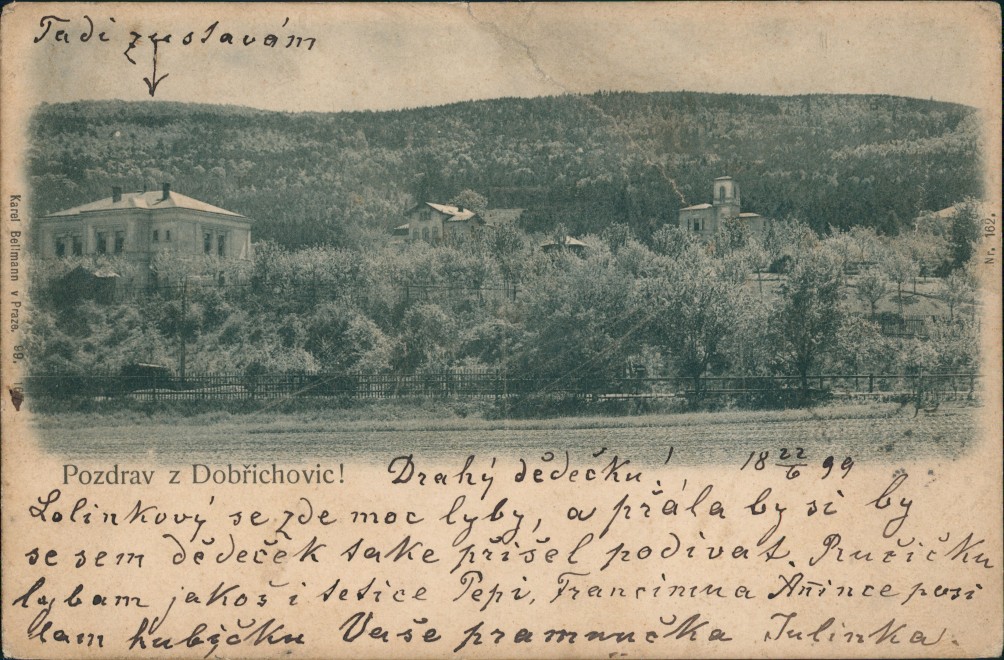 Tadi zustavám
Karel Bellmann v Praze. 99.
Nr. 162.
Pozdrav z Dobřichovic!
Drahý dědečku! 18 22/6 99
Lolinkový se zde moc lyby, a přála by si by
se sem dědeček take přišel podivat. Ručičku
lybam jakož i tetice Pepi, Anince posi
lam hubyčku Vaše pramnučka Julinka.